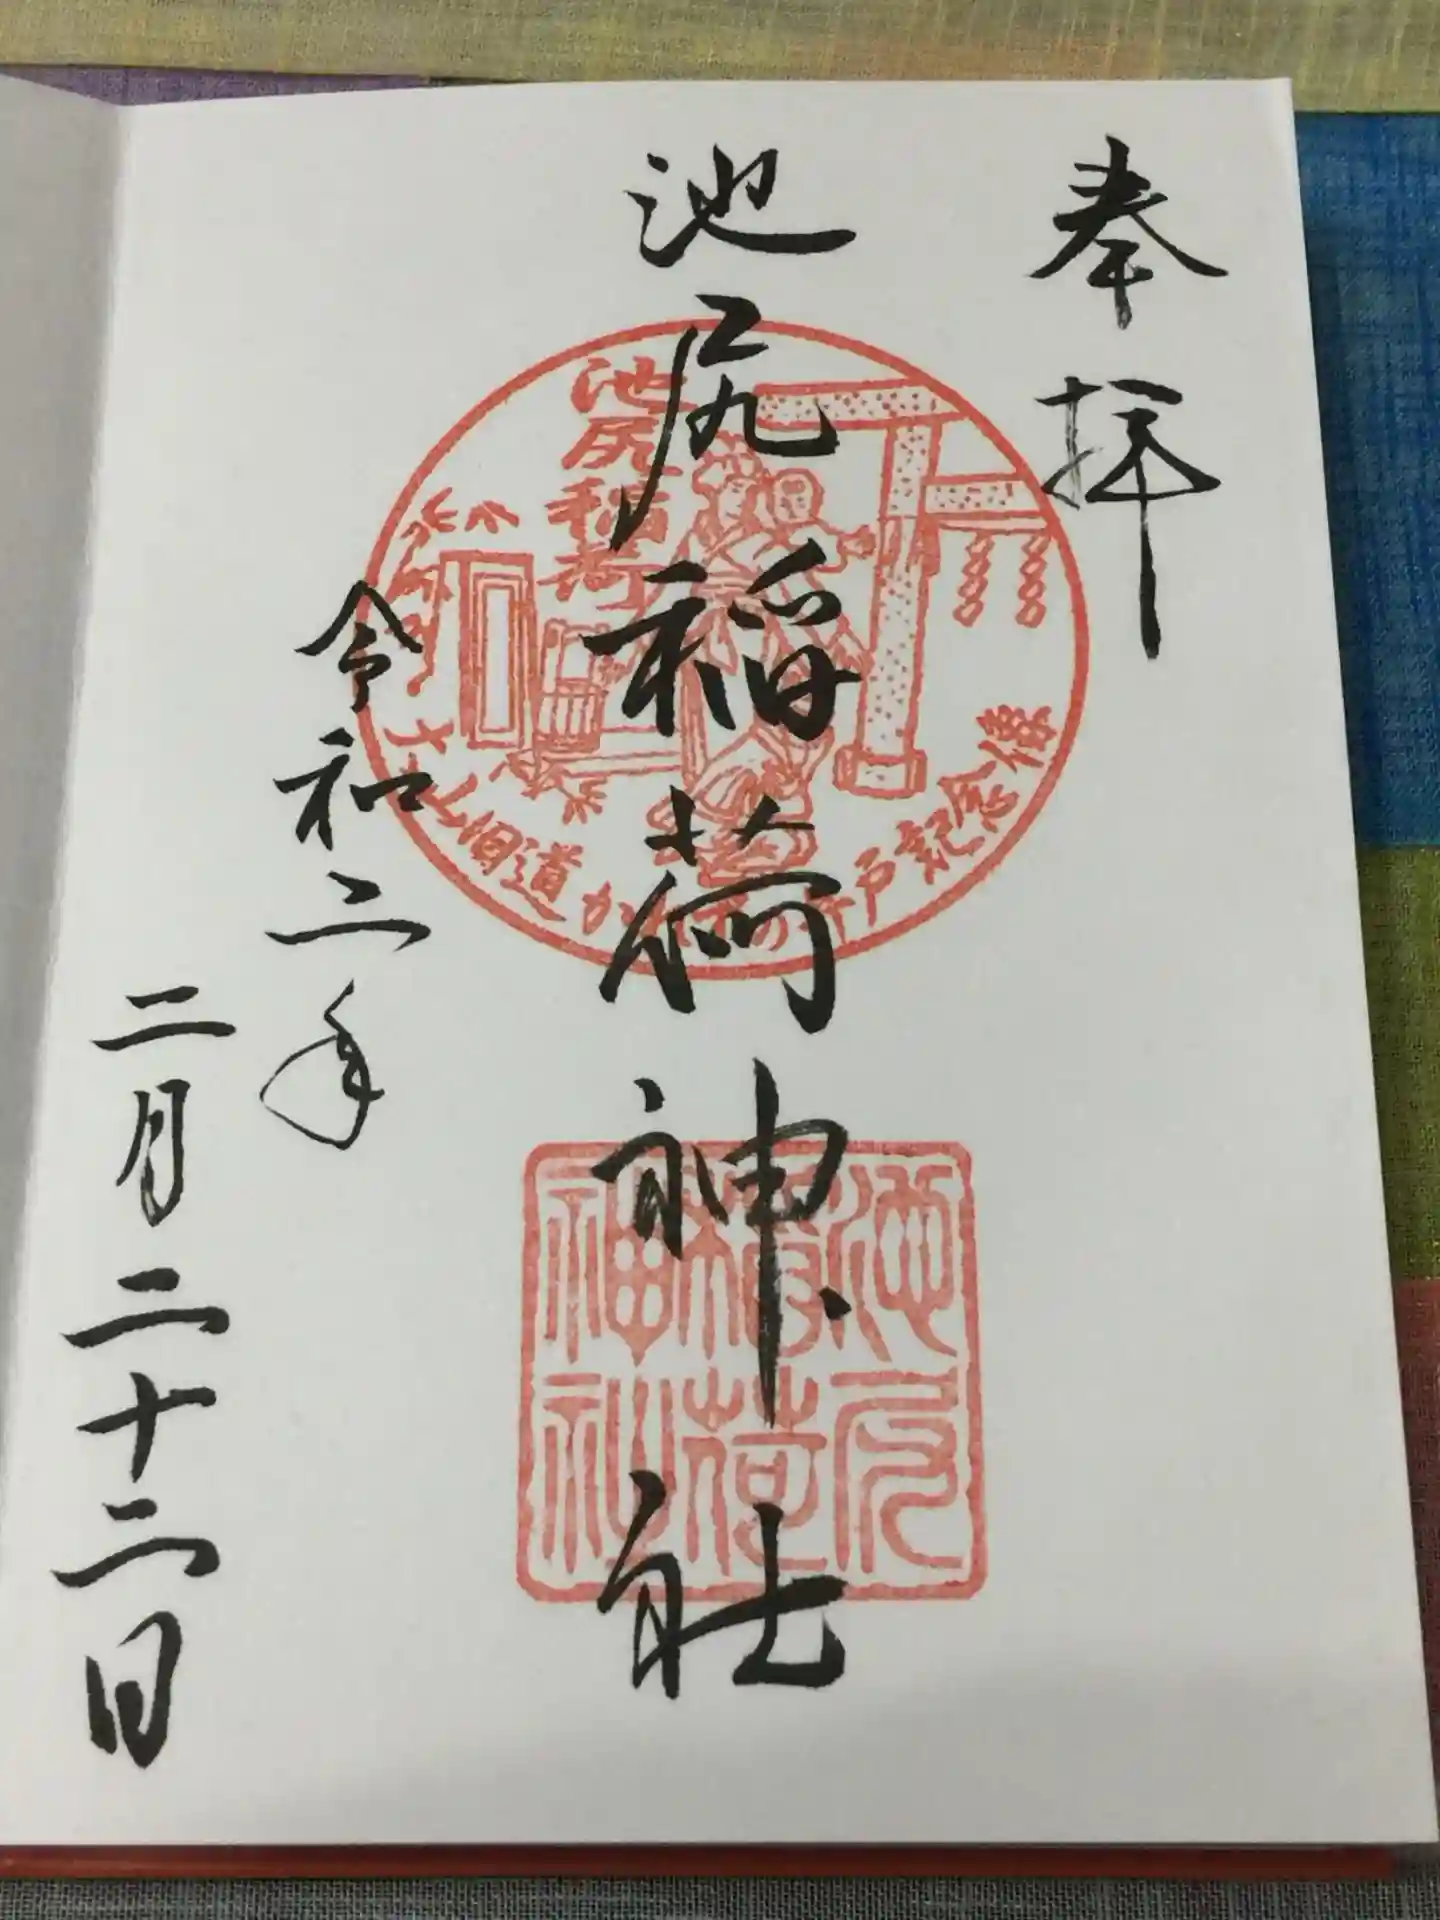 奉拝
池尻稲荷神社
池尻稲荷
大山旧道かれずの井戸記念像
池尻稲荷神社
令和二年
二月二十二日